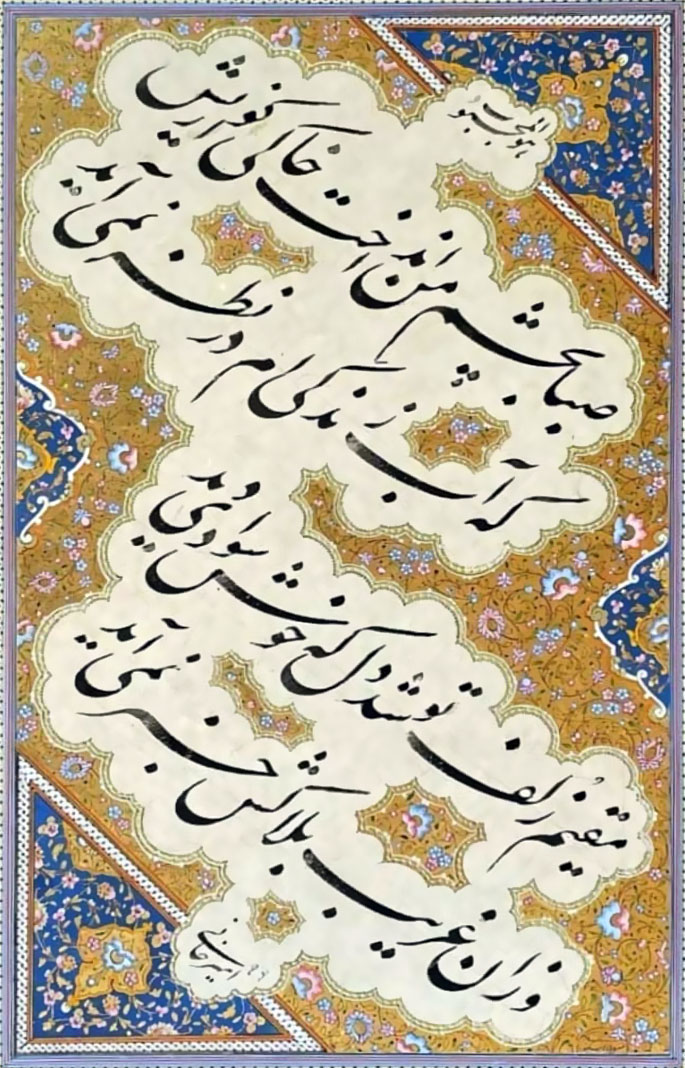 هوالمحبوب
صبا بچشم من انداخت خاکی از کویش
که آب زندگی ام در نظر نمی آید
مقیم زلف تو شد دل که خوش سوادی دید
وزان غریب بلاکش خبر نمی آید
امیرخانی